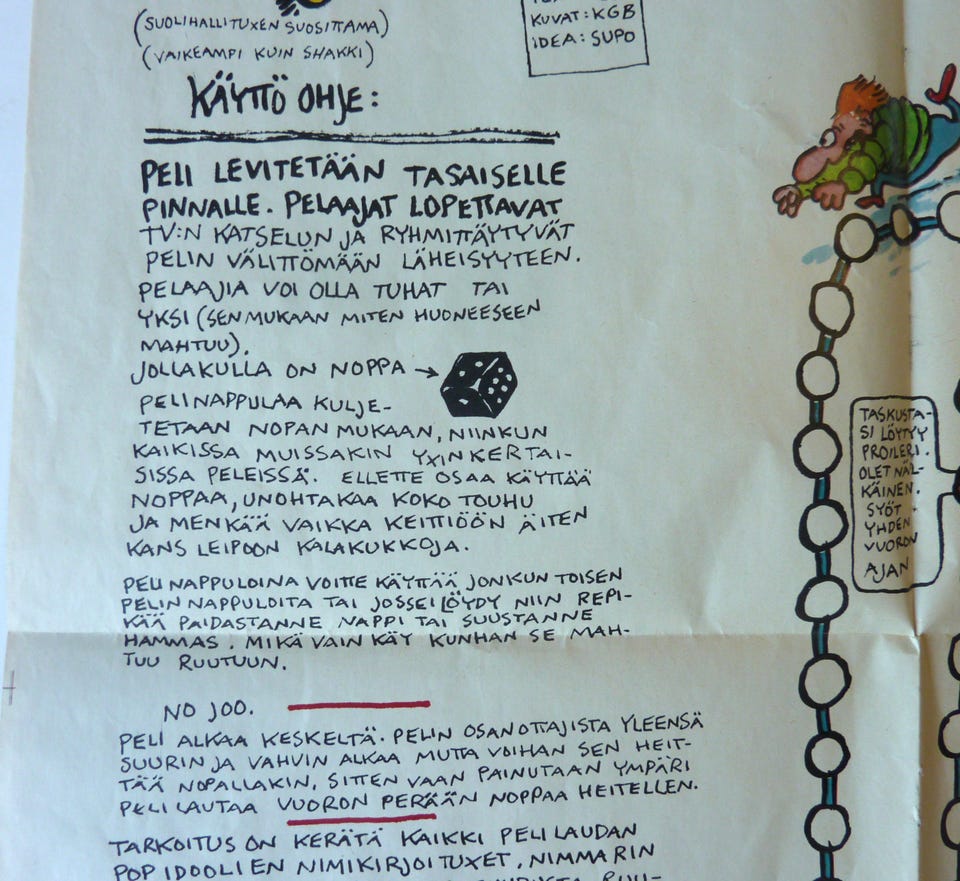 (SUOLIHALLITUXEN SUOSITTAMA)
(VAIKEAMPI KUIN SHAKKI)
KUVAT: KGB
IDEA: SUPO
KÄYTTÖ OHJE:
PELI LEVITETÄÄN TASAISELLE
PINNALLE. PELAAJAT LOPETTAVAT
TV:N KATSELUN JA RYHMITTÄYTYVÄT
PELIN VÄLITTÖMÄÄN LÄHEISYYTEEN.
PELAAJIA VOI OLLA TUHAT TAI
YKSI (SEN MUKAAN MITEN HUONEESEEN
MAHTUU).
JOLLAKULLA ON NOPPA →
PELINAPPULAA KULJE-
TETAAN NOPAN MUKAAN, NIINKUN
KAIKISSA MUISSAKIN YXINKERTAI-
SISSA PELEISSÄ. ELLETTE OSAA KÄYTTÄÄ
NOPPAA, UNOHTAKAA KOKO TOUHU
JA MENKÄÄ VAIKKA KEITTIÖÖN ÄITEN
KANS LEIPOON KALAKUKKOJA.
PELINAPPULOINA VOITTE KÄYTTÄÄ JONKUN TOISEN
PELIN NAPPULOITA TAI JOSSEI LÖYDY NIIN REPI-
KÄÄ PAIDASTANNE NAPPI TAI SUUSTANNE
HAMMAS. MIKÄ VAIN KÄY KUNHAN SE MAH-
TUU RUUTUUN.
NO JOO.
PELI ALKAA KESKELTÄ. PELIN OSANOTTAJISTA YLEENSÄ
SUURIN JA VAHVIN ALKAA MUTTA VOIHAN SEN HEIT-
TÄÄ NOPALLAKIN, SITTEN VAAN PAINUTAAN YMPÄRI
PELILAUTAA VUORON PERÄÄN NOPPAA HEITELLEN.
TARKOITUS ON KERÄTÄ KAIKKI PELILAUDAN
POP IDOOLIEN NIMIKIRJOITUXET. NIMMARIN
TASKUSTA-
SI LÖYTYY
PROILERI.
OLET NÄL-
KÄINEN.
SYÖT
YHDEN
VUORON
AJAN